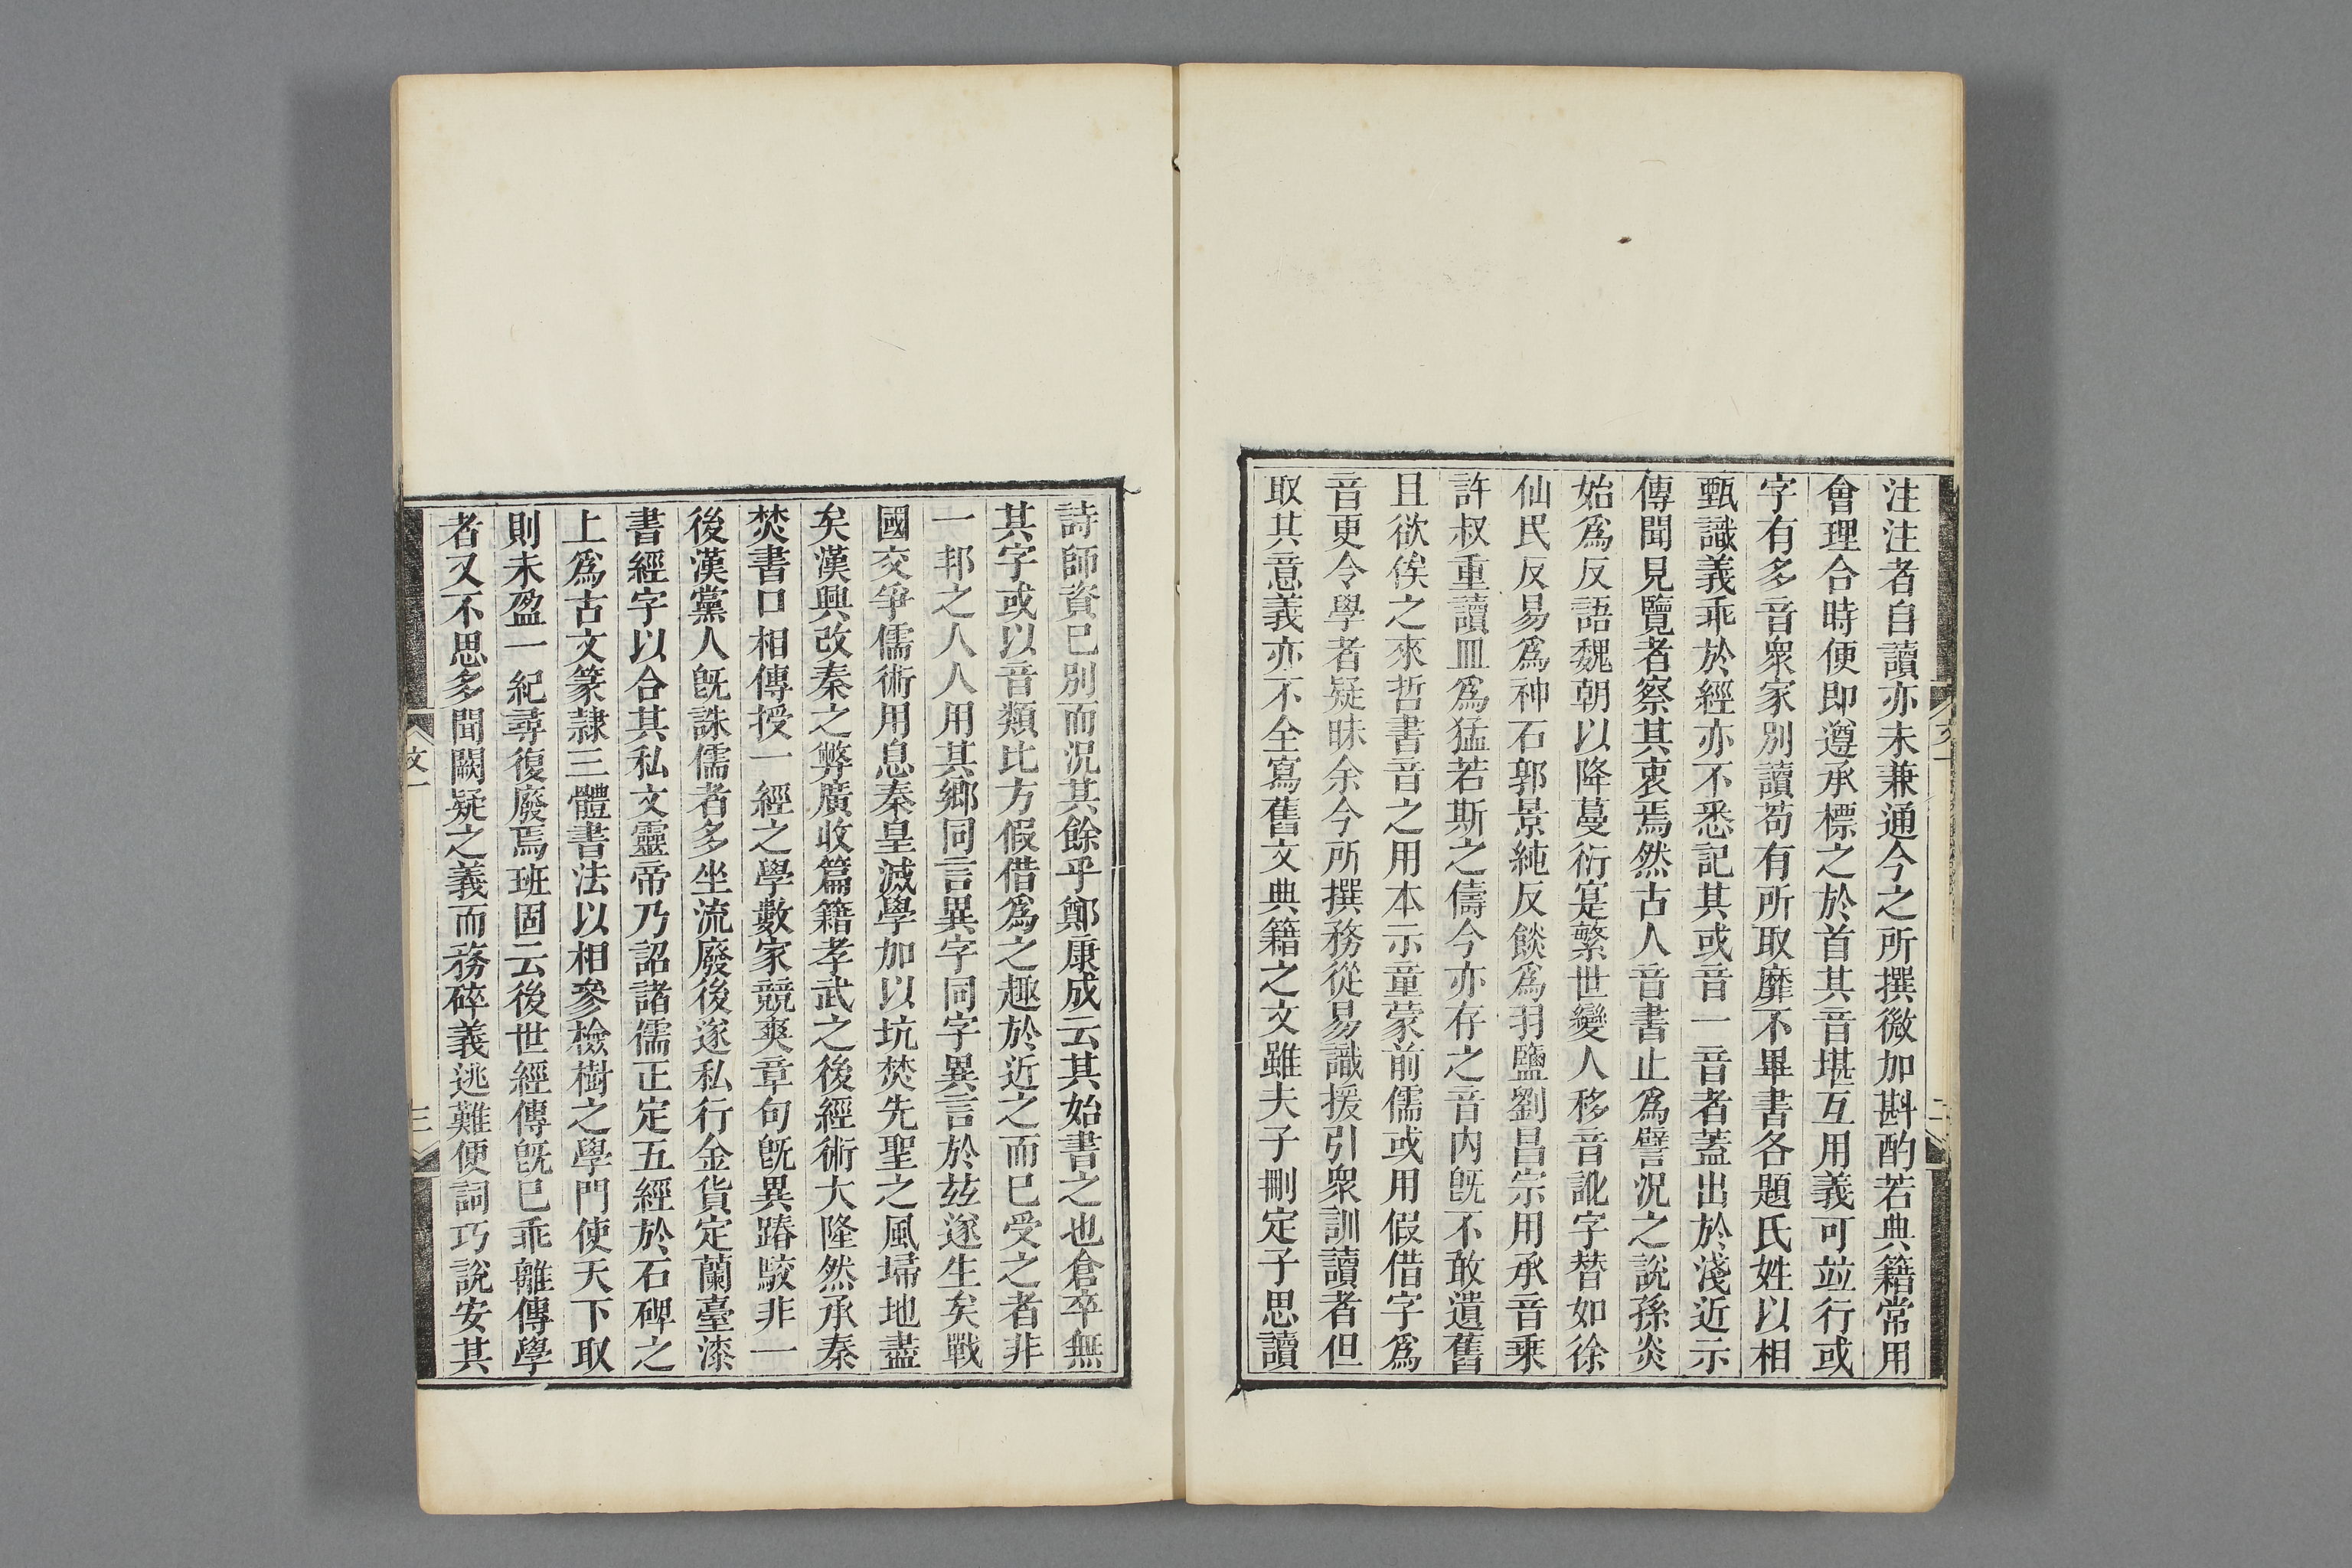 注注者自讀亦未兼通今之所撰微加斟酌若典籍常用
會理合時便即遵承標之於首其音堪互用義可竝行或
字有多音衆家別讀苟有所取靡不畢書各題氏姓以相
甄識義乖於經亦不悉記其或音一音者蓋出於淺近示
傳聞見覽者察其衷焉然古人音書止爲譬況之說孫炎
始爲反語魏朝以降蔓衍寔繁世變人移音訛字替如徐
仙民反易爲神石郭景純反餤爲羽鹽劉昌宗用承音乗
許叔重讀皿爲猛若斯之儔今亦存之音内旣不敢遺舊
且欲俟之來哲書音之用本示童蒙前儒或用假借字爲
音更令學者疑昧余今所撰務從易識援引衆訓讀者但
取其意義亦不全寫舊文典籍之文雖夫子刪定子思讀
文一
二
詩師資已別而況其餘乎鄭康成云其始書之也倉卒無
其字或以音類比方假借爲之趣於近之而已受之者非
一邦之人人用其鄉同言異字同字異言於茲遂生矣戰
國交爭儒術用息秦皇滅學加以坑焚先聖之風埽地盡
矣漢興改秦之弊廣收篇籍孝武之後經術大隆然承秦
焚書口相傳授一經之學數家競爽章句旣異踳駮非一
後漢黨人旣誅儒者多坐流廢後遂私行金貨定蘭臺漆
書經字以合其私文靈帝乃詔諸儒正定五經於石碑之
上爲古文篆隷三體書法以相參檢樹之學門使天下取
則未盈一紀尋復廢焉班固云後世經傳旣已乖離傳學
者又不思多聞闕疑之義而務碎義逃難便詞巧說安其
文一
三